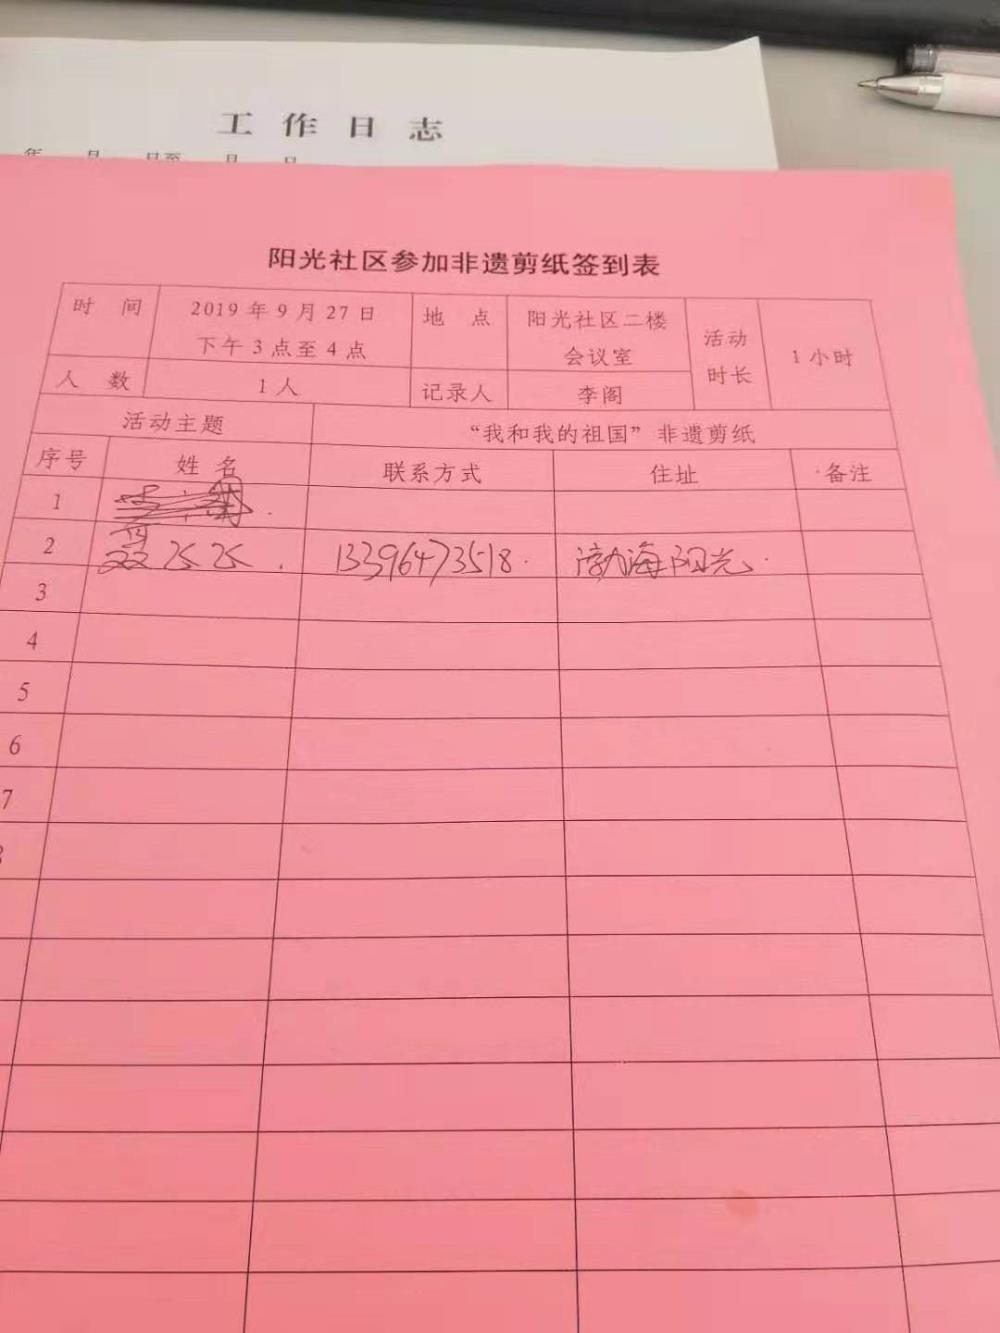 工作日志
年 月 日至 月 日
阳光社区参加非遗剪纸签到表
时 间 2019年9月27日 下午3点至4点 地 点 阳光社区二楼会议室 活动时长 1小时
人 数 1人 记录人 李阁
活动主题 “我和我的祖国”非遗剪纸
序号 姓名 联系方式 住址 备注
1
2 13396473518 渤海阳光
3
4
5
6
7